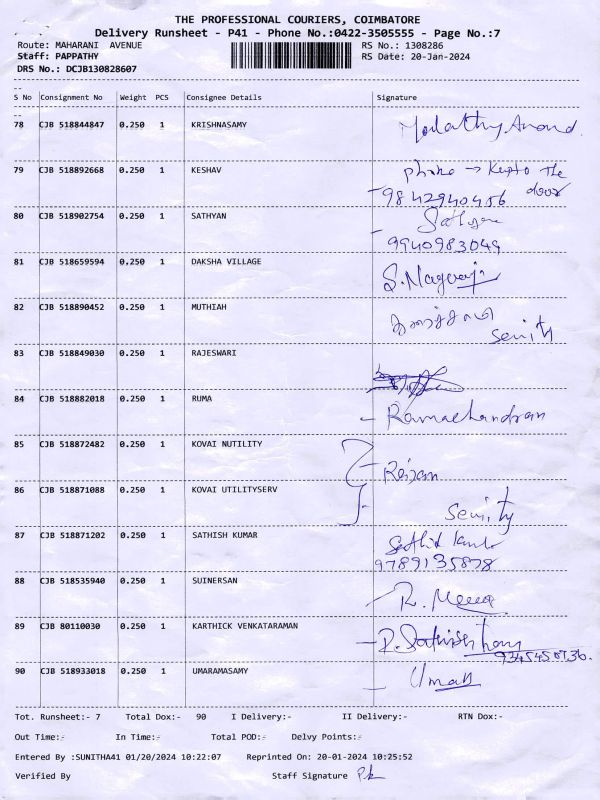 THE PROFESSIONAL COURIERS, COIMBATORE
Delivery Runsheet - P41 - Phone No.:0422-3505555 - Page No.:7
Route: MAHARANI AVENUE RS No.: 1308286
Staff: PAPPATHY RS Date: 20-Jan-2024
DRS No.: DCJB130828607
S No Consignment No Weight PCS Consignee Details Signature
78 CJB 518844847 0.250 1 KRISHNASAMY Anand
79 CJB 518892668 0.250 1 KESHAV phone → Kept to The door
9842940456
80 CJB 518902754 0.250 1 SATHYAN Sathyan
9940983049
81 CJB 518659594 0.250 1 DAKSHA VILLAGE S.Nagaraj
82 CJB 518890452 0.250 1 MUTHIAH
83 CJB 518849030 0.250 1 RAJESWARI
84 CJB 518882018 0.250 1 RUMA Ramachandran
85 CJB 518872482 0.250 1 KOVAI NUTILITY Rajan
86 CJB 518871088 0.250 1 KOVAI UTILITYSERV
87 CJB 518871202 0.250 1 SATHISH KUMAR
9789135878
88 CJB 518535940 0.250 1 SUINERSAN R. Meena
89 CJB 80110030 0.250 1 KARTHICK VENKATARAMAN
90 CJB 518933018 0.250 1 UMARAMASAMY Umar
Tot. Runsheet:- 7 Total Dox:- 90 I Delivery:- II Delivery:- RTN Dox:-
Out Time:- In Time:- Total POD:- Delvy Points:-
Entered By :SUNITHA41 01/20/2024 10:22:07 Reprinted On: 20-01-2024 10:25:52
Verified By Staff Signature